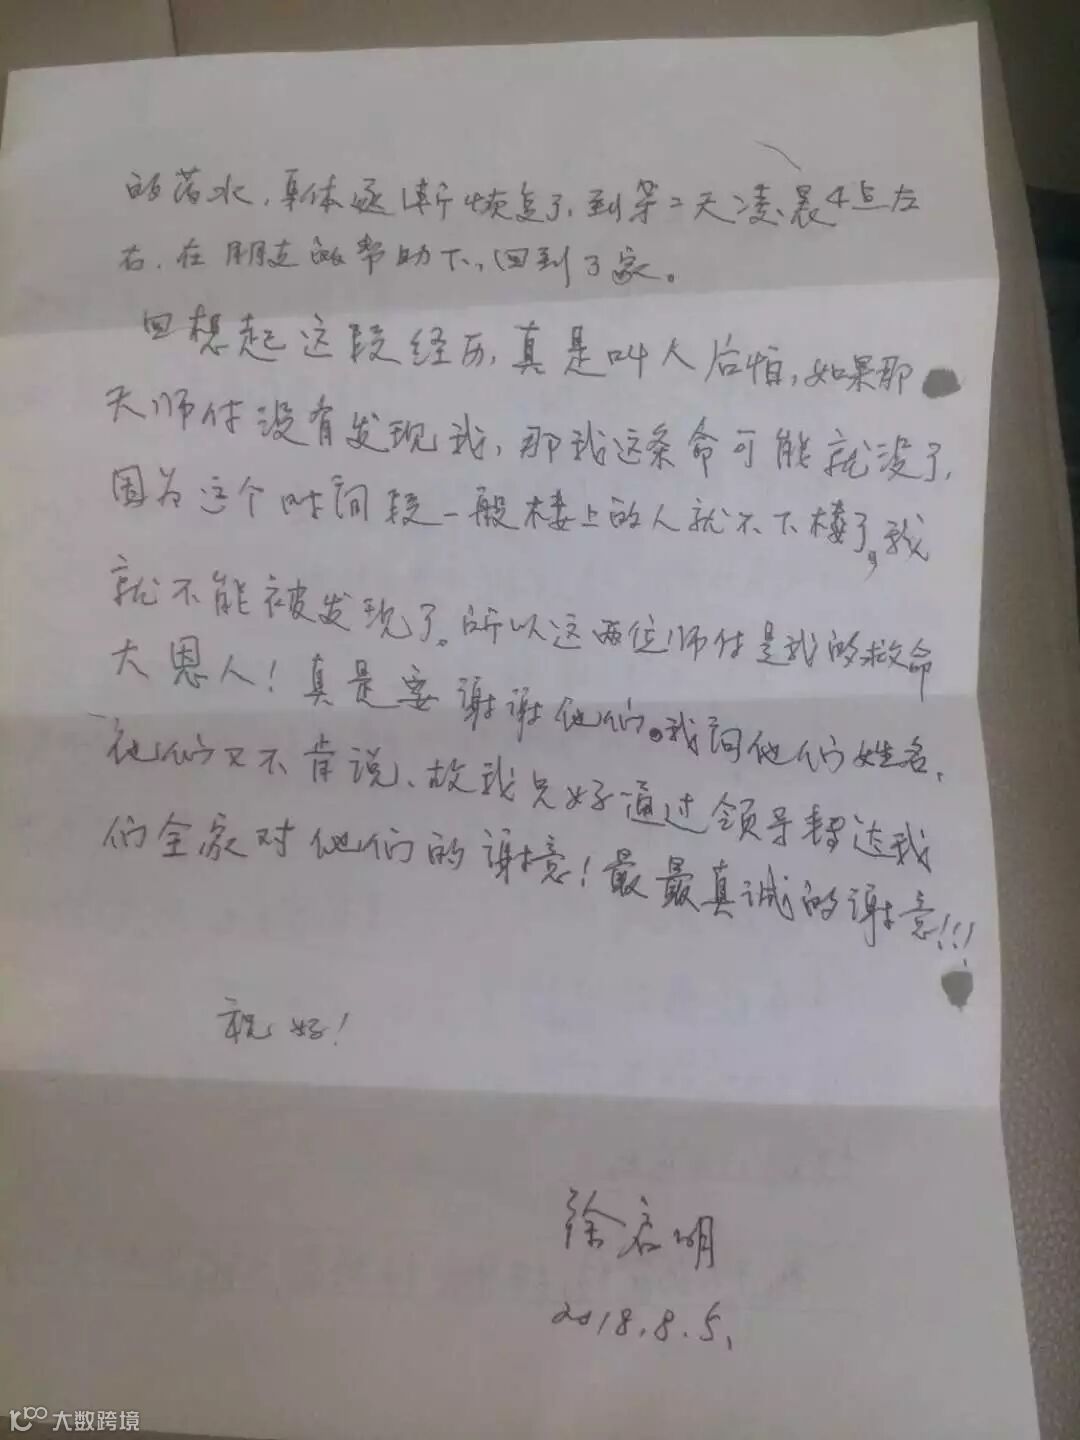 的药水，身体逐渐恢复了，到第二天凌晨4点左
右，在朋友的帮助下，回到了家。
回想起这段经历，真是叫人后怕，如果那
天师付没有发现我，那我这条命可能就没了，
因为这个时间段一般楼上的人就不下楼了，我
就不能被发现了。所以这两位师付是我的救命
大恩人！真是要谢谢他们。我问他们姓名，
他们又不肯说，故我只好通过领导转达我
们全家对他们的谢意！最最真诚的谢意！！！
祝好！
徐启明
2018.8.5.
大数跨境